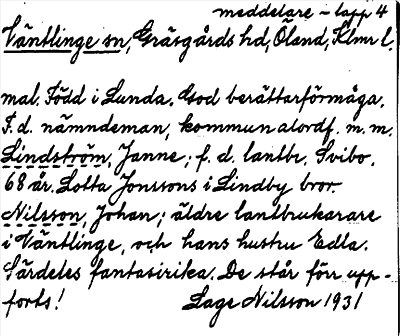 meddelare - lapp 4
Ventlinge sn, Gräsgårds hd, Öland, Klmr l.
mal. Född i Lunda. God berättarförmåga.
F.d. nämndeman, kommunalordf. m.m.
Lindström, Janne; f.d. lantbr. Svibo.
68 år. Lotta Jonssons i Lindby bror.
Nilsson, Johan; äldre lantbrukare
i Väntlinge, och hans hustru Edla.
Särdeles fantasirika. De står förr upp-
forts!
Lage Nilsson 1931